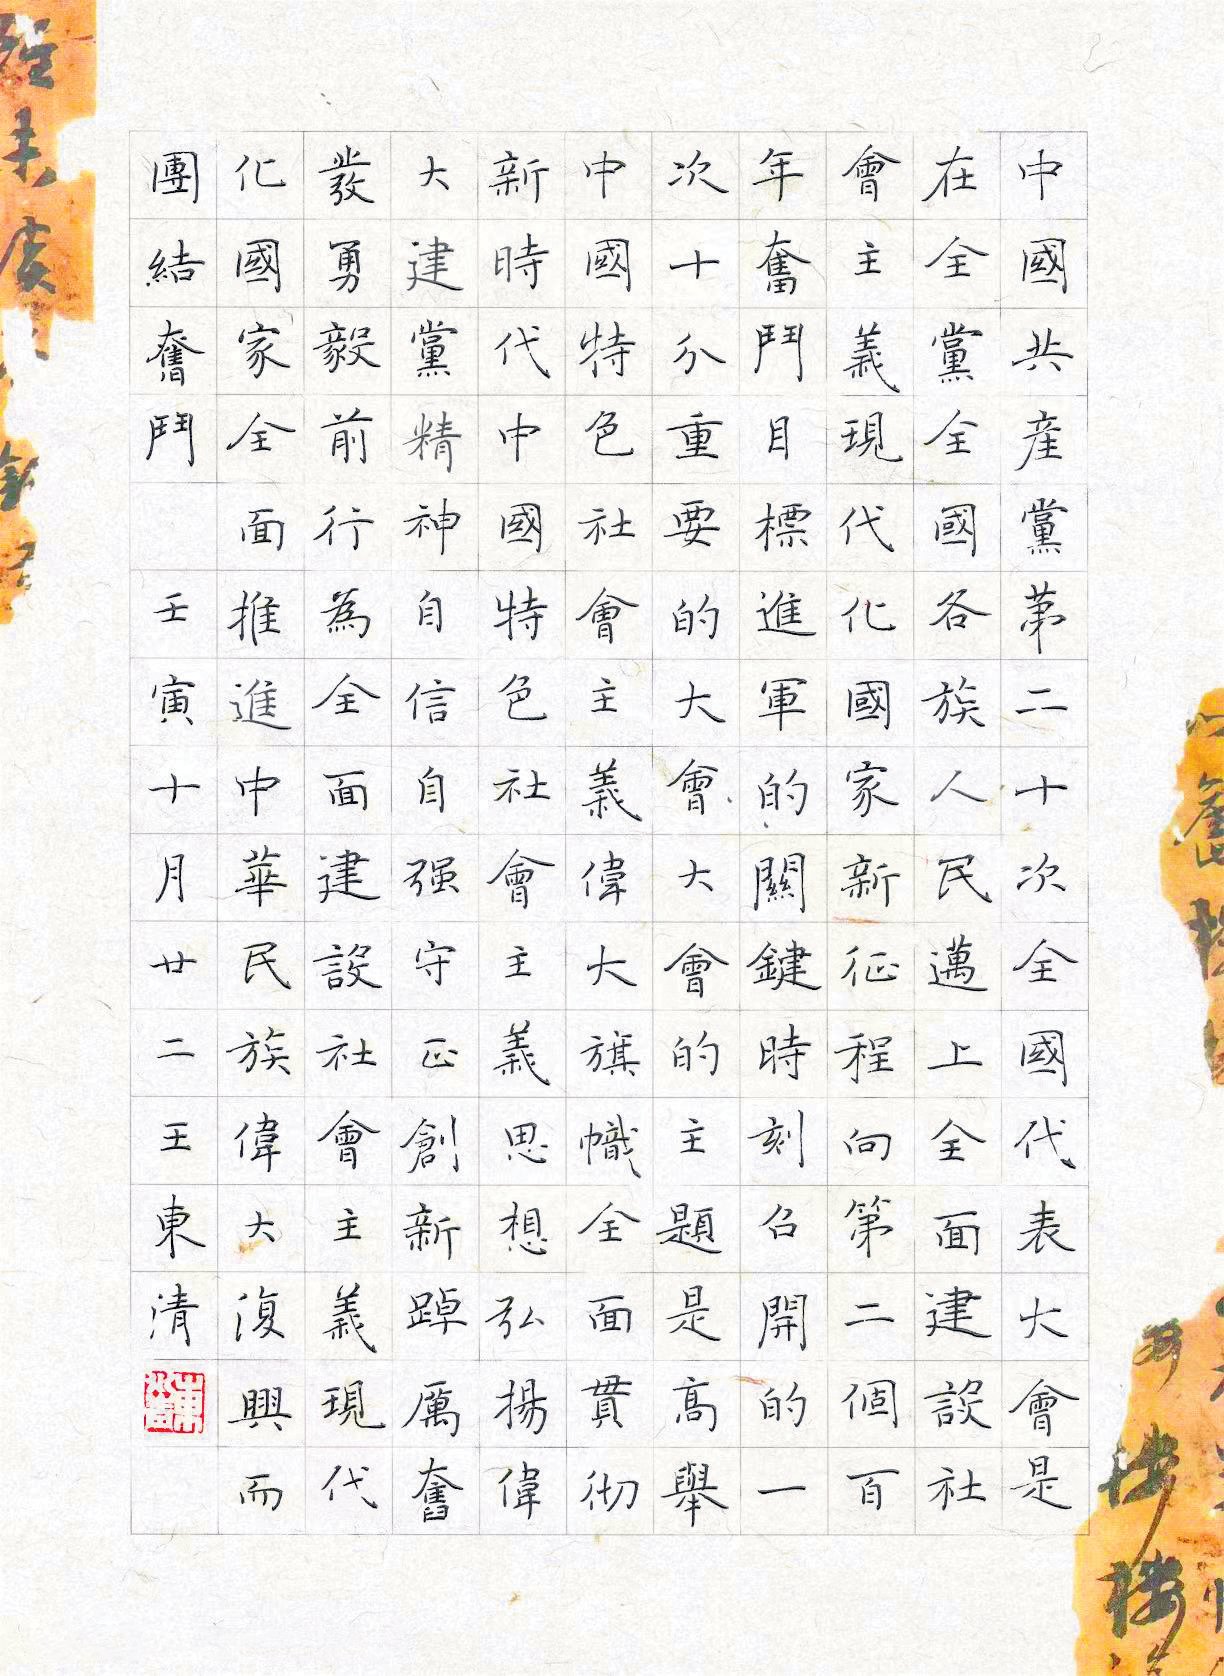 中國共産黨第二十次全國代表大會是
在全黨全國各族人民邁上全面建設社
會主義現代化國家新征程向第二個百
年奮鬥目標進軍的關鍵時刻召開的一
次十分重要的大會大會的主題是高舉
中國特色社會主義偉大旗幟全面貫彻
新時代中國特色社會主義思想弘揚偉
大建黨精神自信自强守正創新踔厲奮
發勇毅前行為全面建設社會主義現代
化國家全面推進中華民族偉大復興而
團結奮鬥 壬寅十月廿二王東清